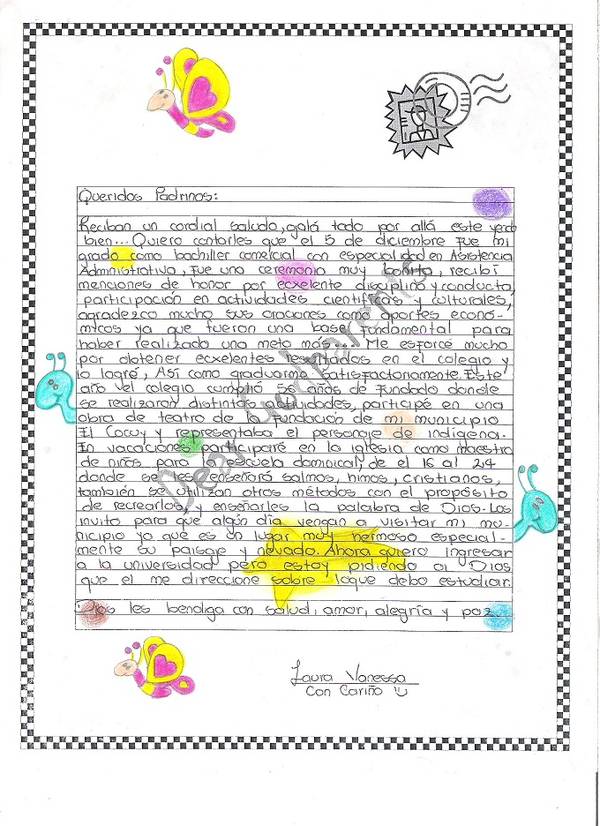 Queridos Padrinos:
Reciban un cordial saludo, ojalá todo por allá este yendo
bien... Quiero contarles que el 5 de diciembre fue mi
grado como bachiller comercial con especialidad en Asistencia
Administrativa, fue una ceremonia muy bonita, recibí
menciones de honor por excelente disciplina y conducta,
participación en actividades científicas y culturales,
agradezco mucho sus oraciones como aportes econó-
micos ya que fueron una base fundamental para
haber realizado una meta más. Me esforcé mucho
por obtener ecxelentes resultados en el colegio y
lo logré, Así como graduarme satisfactoriamente. Este
año el colegio cumplió 56 años de fundado donde
se realizaron distintas actividades, participé en una
obra de teatro de la fundación de mi municipio
El Cocuy y representaba el personaje de indígena.
En vacaciones participaré en la iglesia como maestra
de niños para la escuela dominical, de el 16 al 24
donde se les enseñará salmos, himos, cristianos,
también se utilizan otros métodos con el propósito
de recrearlos, y enseñarles la palabra de Dios. Los
invito para que algún día vengan a visitar mi mu-
nicipio ya que es un lugar muy hermoso especial-
mente su paisaje y nevado. Ahora quiero ingresar
a la universidad pero estoy pidiendo al Dios
que el me direccione sobre loque debo estudiar.
Dios les bendiga con salud, amor, alegría y paz.
Laura Vanessa
Con Cariño
Dear Godparents